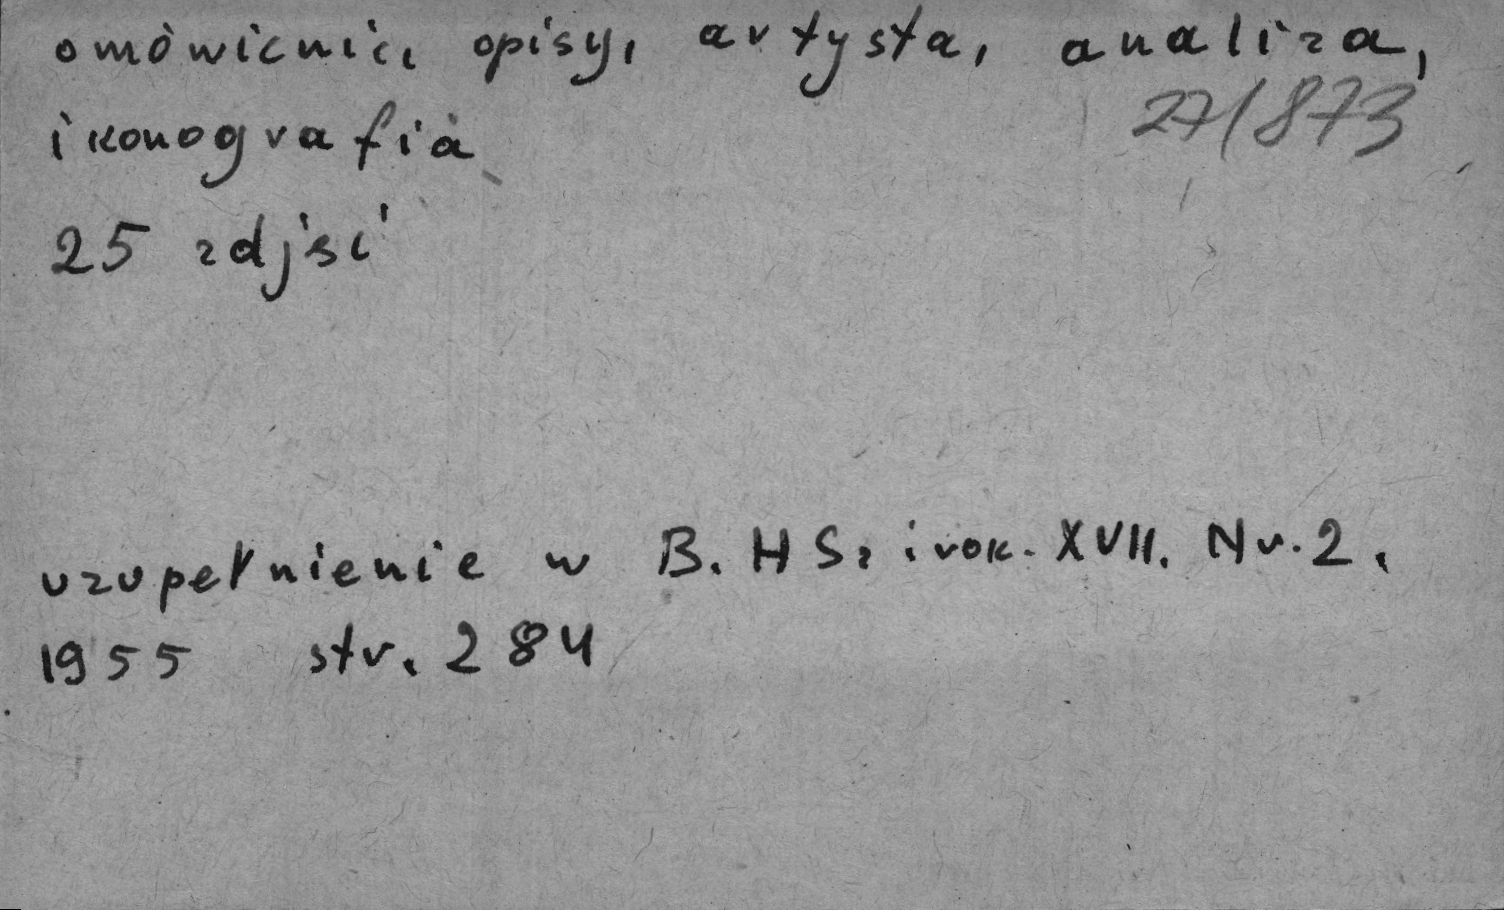 omówienie, opisy, artysta, analiza,
27/873
ikonografia
25 zdjęć
uzupełnienie w B. HS. i rok. XVII. Nr. 2.
1955 str. 284